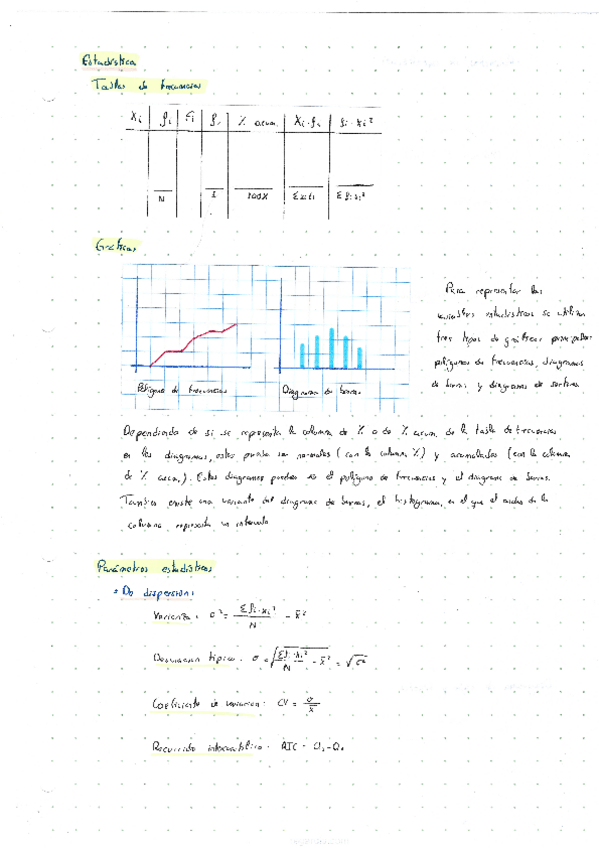 Estadística
Tablas de frecuencias
Xi fi Fi fr % acum. Xi·fi fi·xi²
N 1 100% Σxifi Σfi·xi²
Gráficas
Para representar las
variables estadísticas se utilizan
tres tipos de gráficas principales:
polígonos de frecuencias, diagramas
de barras y diagramas de sectores
Polígono de frecuencias
Diagrama de barras
Dependiendo de si se representa la columna de % o de % acum. de la tabla de frecuencias
en los diagramas, estos pueden ser normales (con la columna %) y acumulados (con la columna
de % acum.). Estos diagramas pueden ser el polígono de frecuencias y el diagrama de barras.
También existe una variante del diagrama de barras, el histograma, en el que el ancho de la
columna representa un intervalo
Parámetros estadísticos
De dispersión:
Varianza: σ² = Σfi·xi² / N - x̄²
Desviación típica: σ = √(Σfi·xi² / N - x̄²) = √σ²
Coeficiente de variación: CV = σ / x̄
Recorrido intercuartílico: